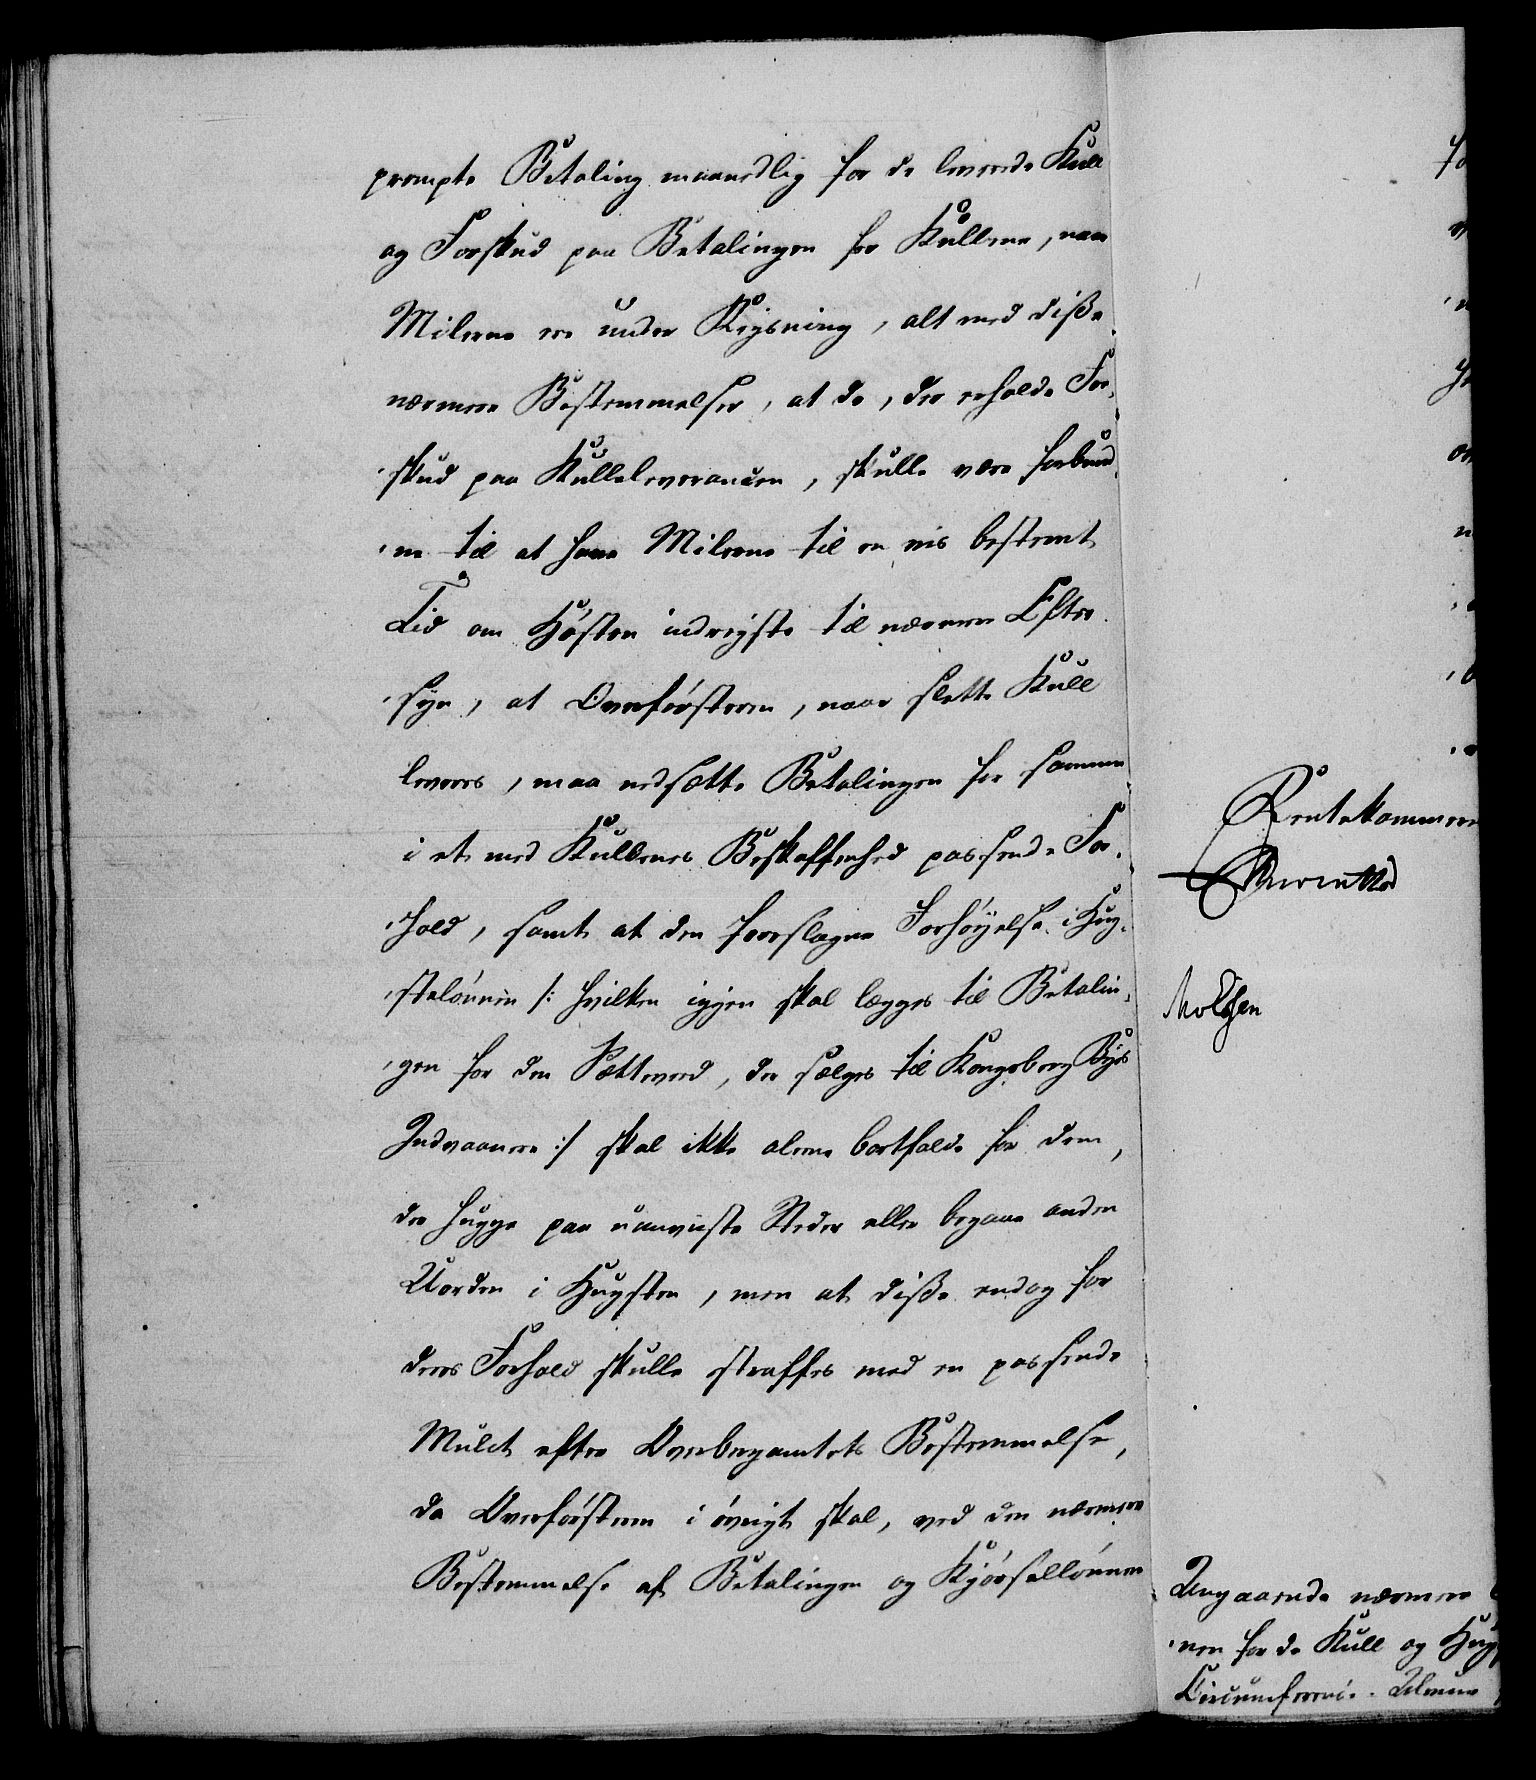 prompte Betaling maanedlig for de leverede Kull
og Forskud paa Betalingen for Kullene, naar
Milerne ere under Røgsning, alt med disse
nærmere Bestemmelser, at de, der erholde For-
skud paa Kulleleverancen, skulle være forbund-
ne til at have Milerne til en vis bestemt
Tid om Høsten indreyste til nærmere Efter-
syn, at Overførsteren, naar slette Kull
leveres, maa nedsætte Betalingen for samme
i et med Kullenes Beskaffenhed passende For-
hold, samt at den foreslagne Forhøyelse i Hug-
stelønnen /: hvilken igjen skal lægges til Betalin-
gen for den Sætteved, der sælges til Kongsberg Byes
Indvaanere :/ skal ikke alene bortfalde for dem,
der hugge paa uanviiste Steder eller begaae anden
Uorden i Hugsten, men at disse endog for
deres Forhold skulle straffes med en passende
Mulct efter Overbergamtets Bestemmelse,
da Overførsteren i øvrigt skal, ved den nærmere
Bestemmelse af Betalingen og Kjørsellønnen
Rentekammere
Angaaende nærmere
nen for de Kull og Hug
Circumference.